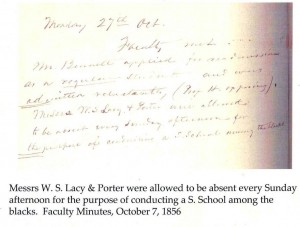 Monday 27th Oct.
Faculty met ...
Mr. Bennett applied for
as a regular and was
admitted reluctantly
Messrs W. S. Lacy & Porter were allowed
to be absent every Sunday afternoon for
the purpose of conducting a S. School among the blacks
Messrs W. S. Lacy & Porter were allowed to be absent every Sunday
afternoon for the purpose of conducting a S. School among the
blacks. Faculty Minutes, October 7, 1856